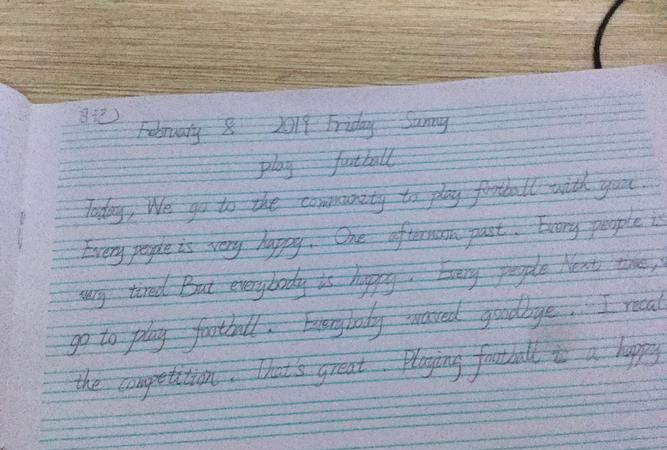 日记
February 8 2019 Friday Sunny
play football
Today, We go to the community to play football with you.
Every people is very happy. One afternoon past. Every people is
very tired But everybody is happy. Every people Next time,
go to play football. Everybody waved goodbye. I recal
the competition. That's great. Playing football is a happy